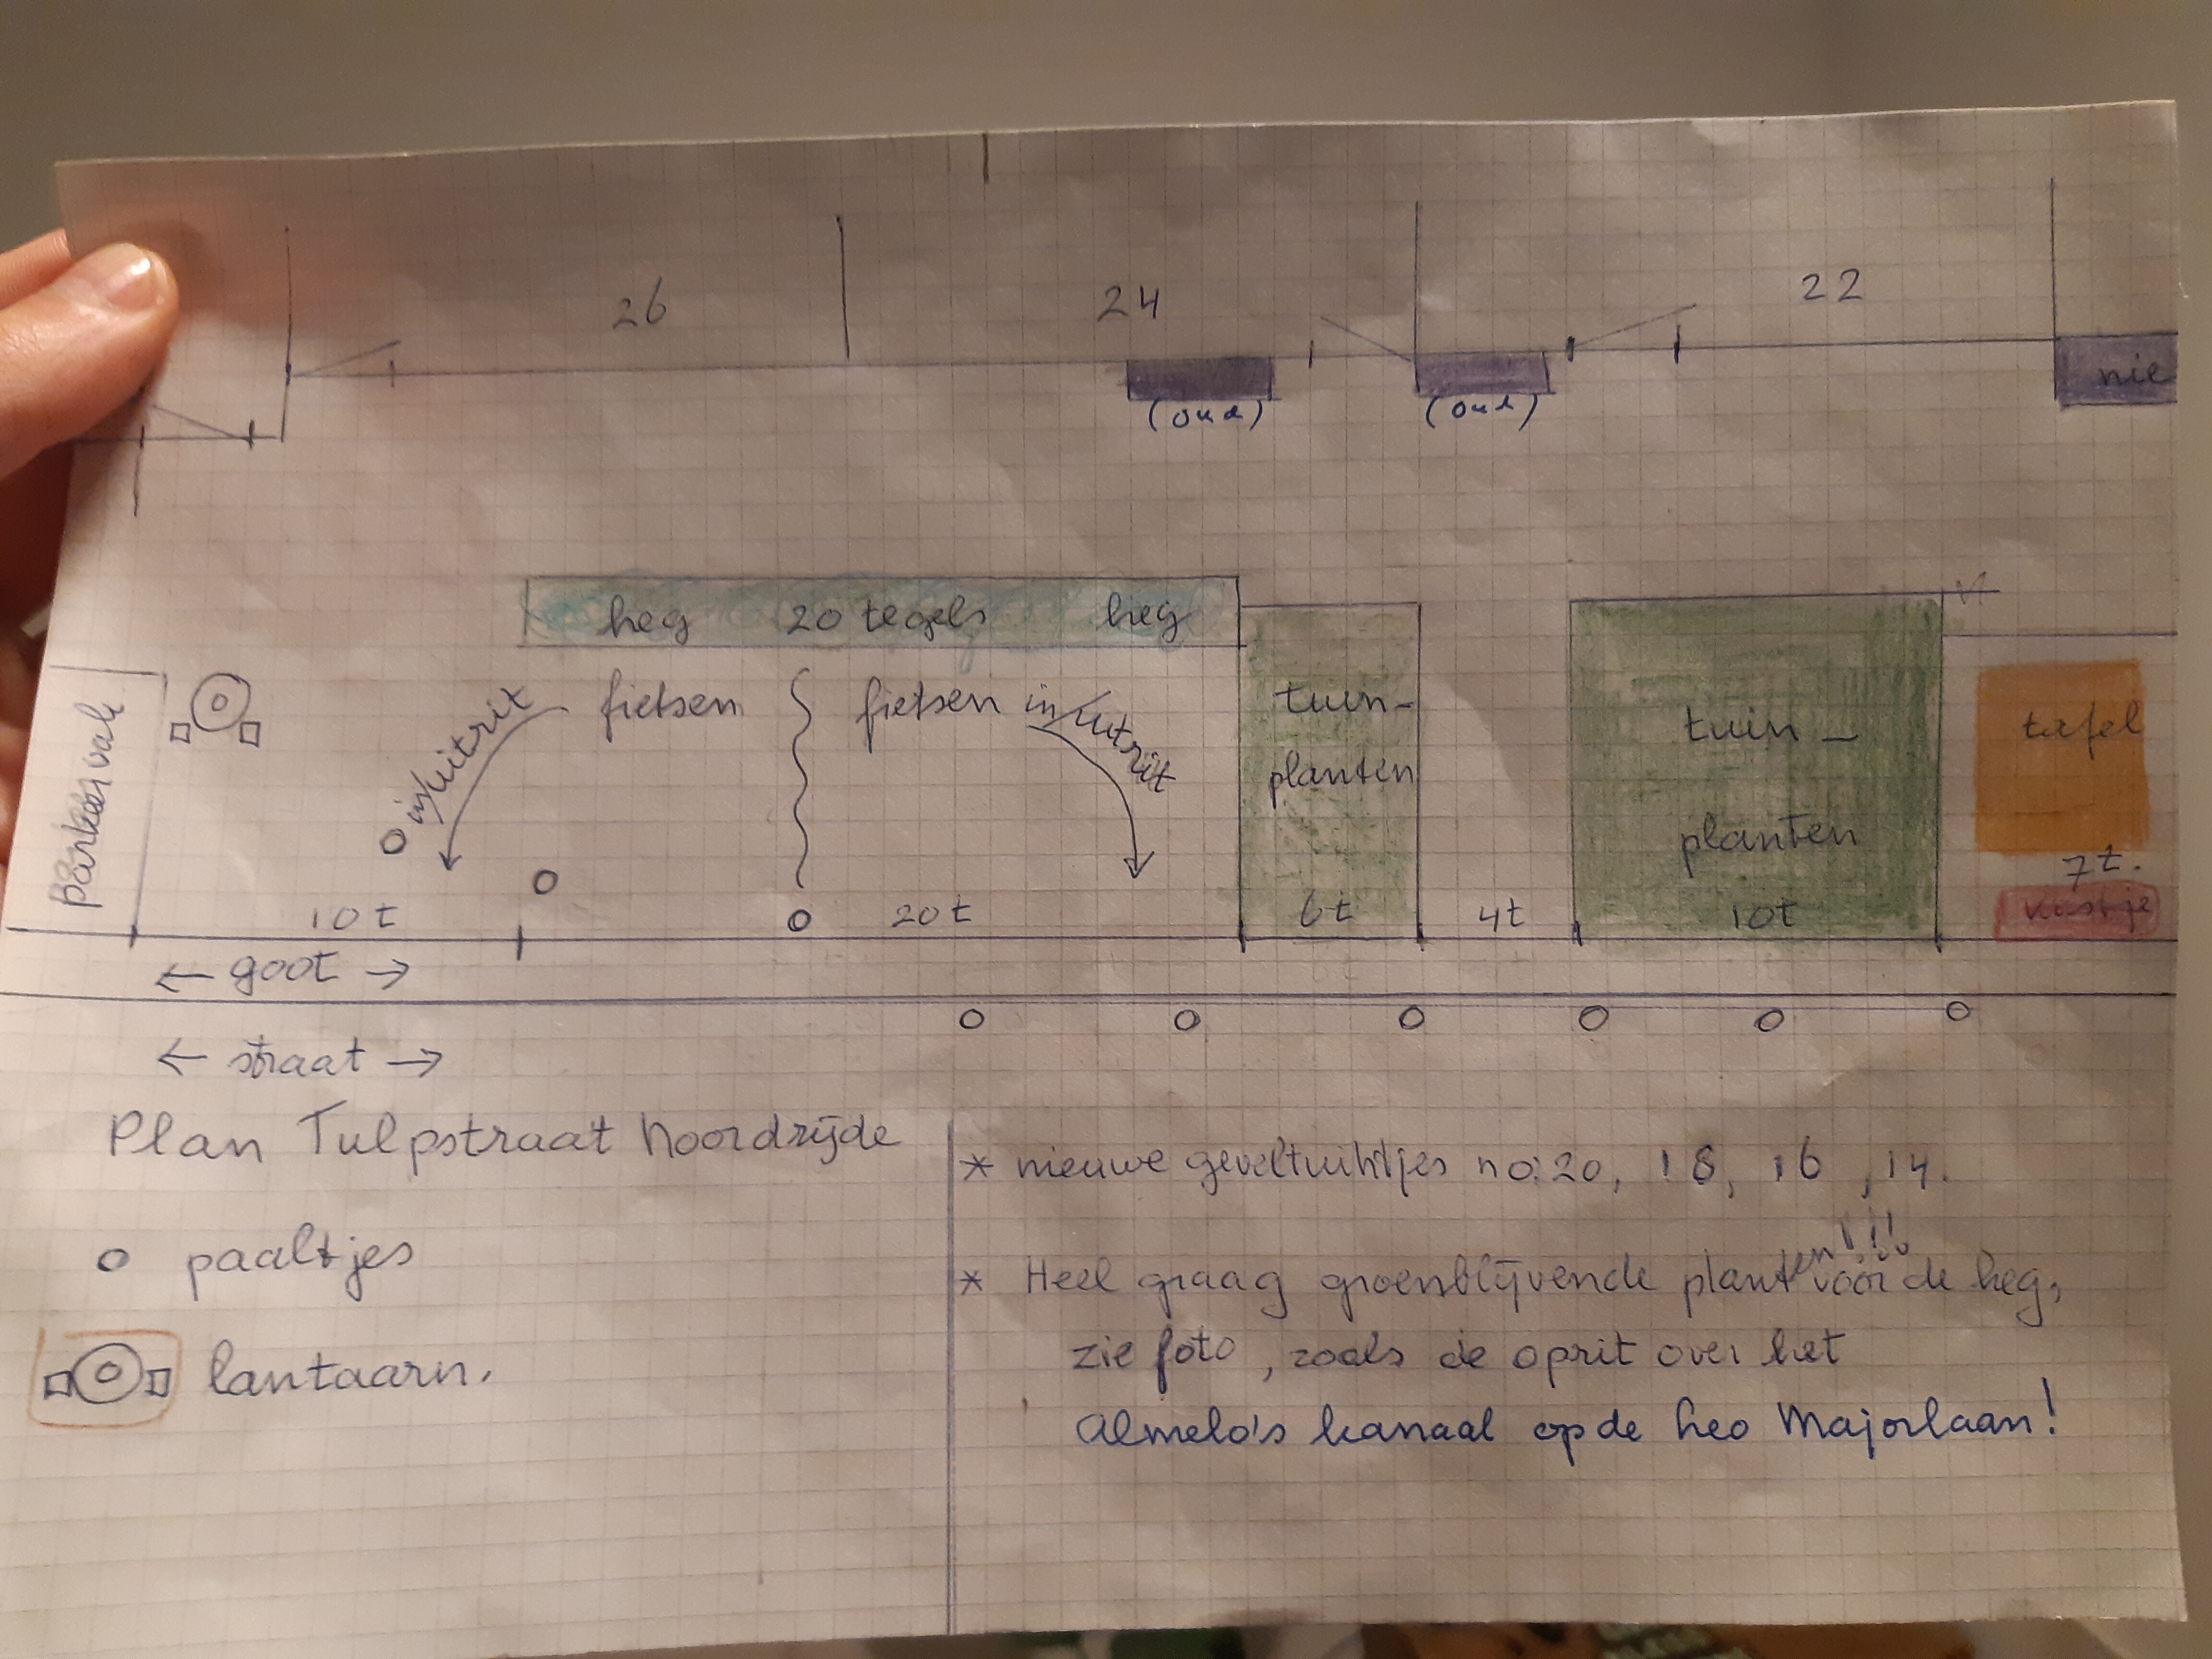 26 24 22
(oud) (oud) nie
heg 20 tegels heg
parkeervak
in/uitrit fietsen fietsen in/uitrit
tuin-
planten
tuin-
planten
tafel
7t.
kastje
10t 20t 6t 4t 10t
← goot →
← straat →
Plan Tulpstraat Noordzijde
o paaltjes
lantaarn.
* nieuwe geveltuintjes no: 20, 18, 16, 14.
* Heel graag groenblijvende planten!!! vóór de heg,
zie foto, zoals de oprit over het
Almelo's kanaal op de heo Majorlaan!